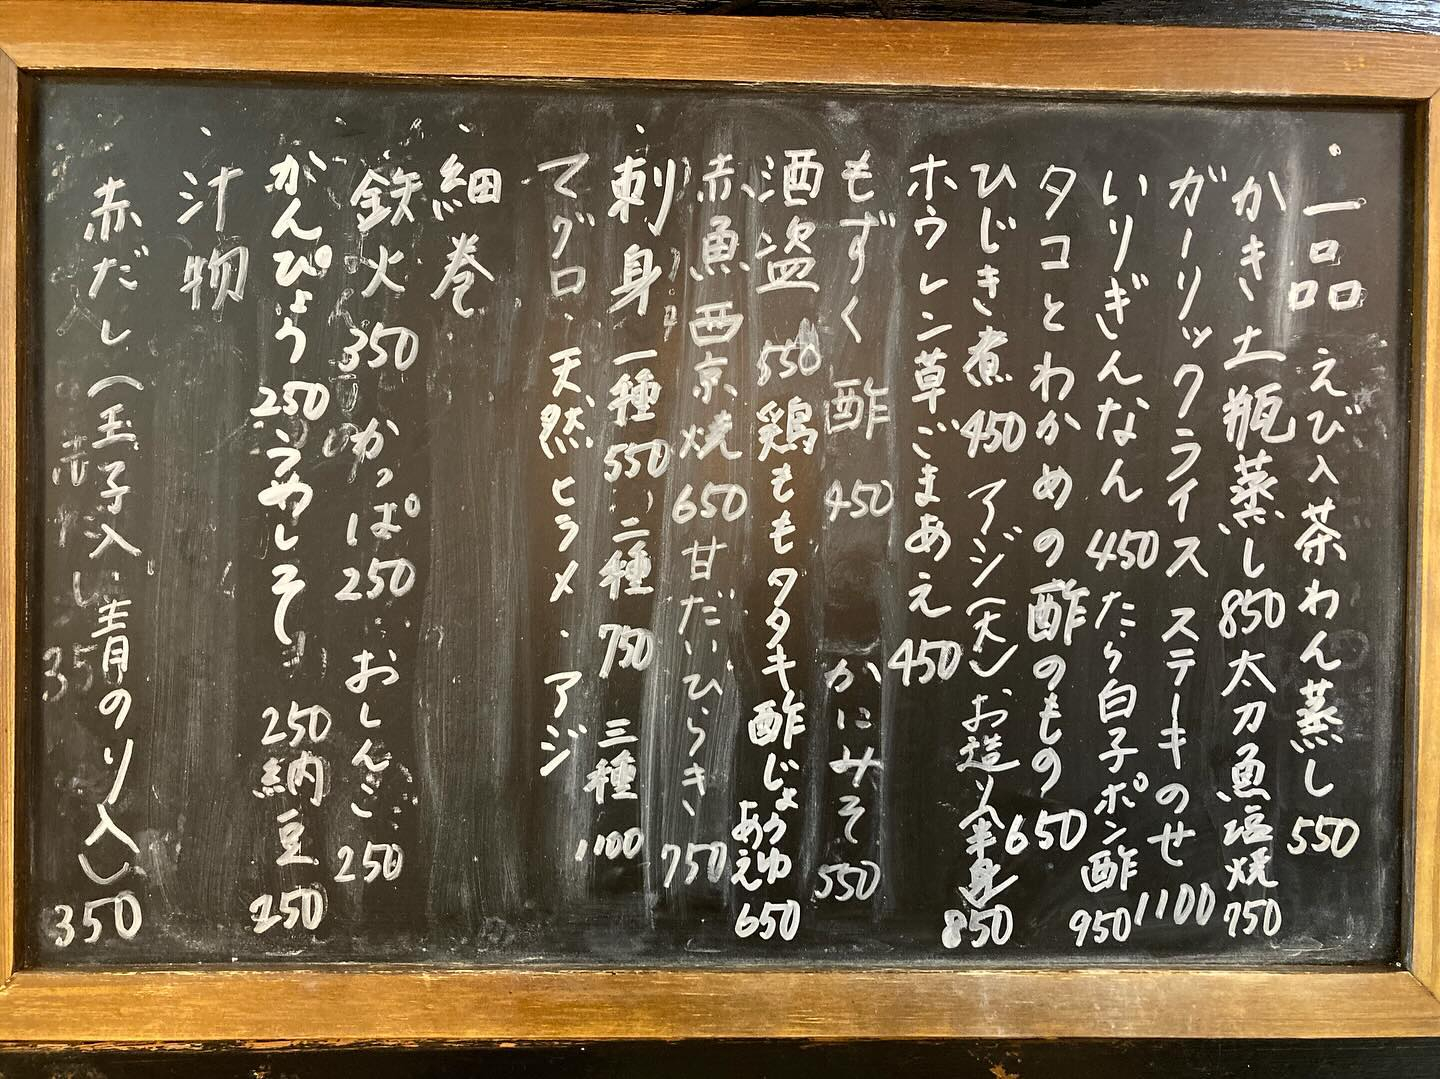 ・一品 えび入茶わん蒸し 550
かき土瓶蒸し 850 太刀魚塩焼 750
ガーリックライス ステーキのせ 1100
いりぎんなん 450 たら白子ポン酢 950
タコとわかめの酢のもの 650
ひじき煮 450 アジ(大)お造り(半身) 850
ホウレン草ごまあえ 450
もずく酢 450 かにみそ 550
酒盗 550 鶏ももタタキ酢じょうゆあえ 650
赤魚西京焼 650 甘だいひらき 750
・刺身 一種 550 二種 750 三種 1100
マグロ・天然ヒラメ・アジ
・細巻
鉄火 350 かっぱ 250 おしんこ 250
かんぴょう 250 うめしそ 250 納豆 250
・汁物
赤だし(玉子入 青のり入) 350